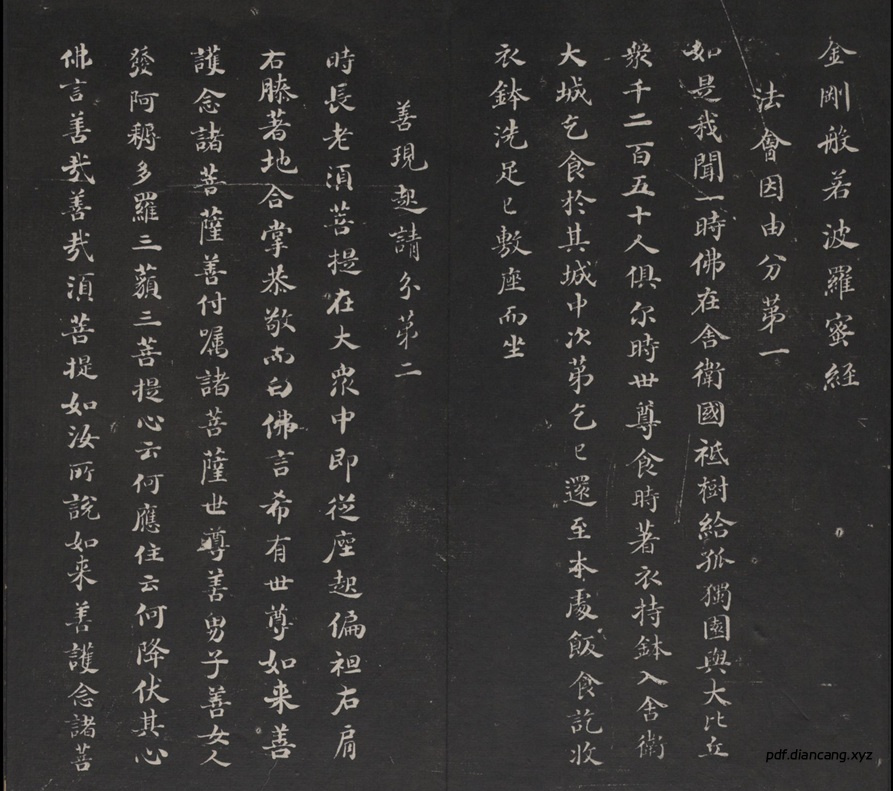 金剛般若波羅蜜經
法會因由分第一
如是我聞一時佛在舍衛國祇樹給孤獨園與大比丘
衆千二百五十人俱尔時世尊食時著衣持鉢入舍衛
大城乞食於其城中次第乞已還至本處飯食訖收
衣鉢洗足已敷座而坐
善現起請分第二
時長老須菩提在大衆中即從座起偏袒右肩
右膝著地合掌恭敬而白佛言希有世尊如来善
護念諸菩薩善付嘱諸菩薩世尊善男子善女人
發阿耨多羅三藐三菩提心云何應住云何降伏其心
佛言善哉善哉須菩提如汝所說如来善護念諸菩
pdf.diancang.xyz